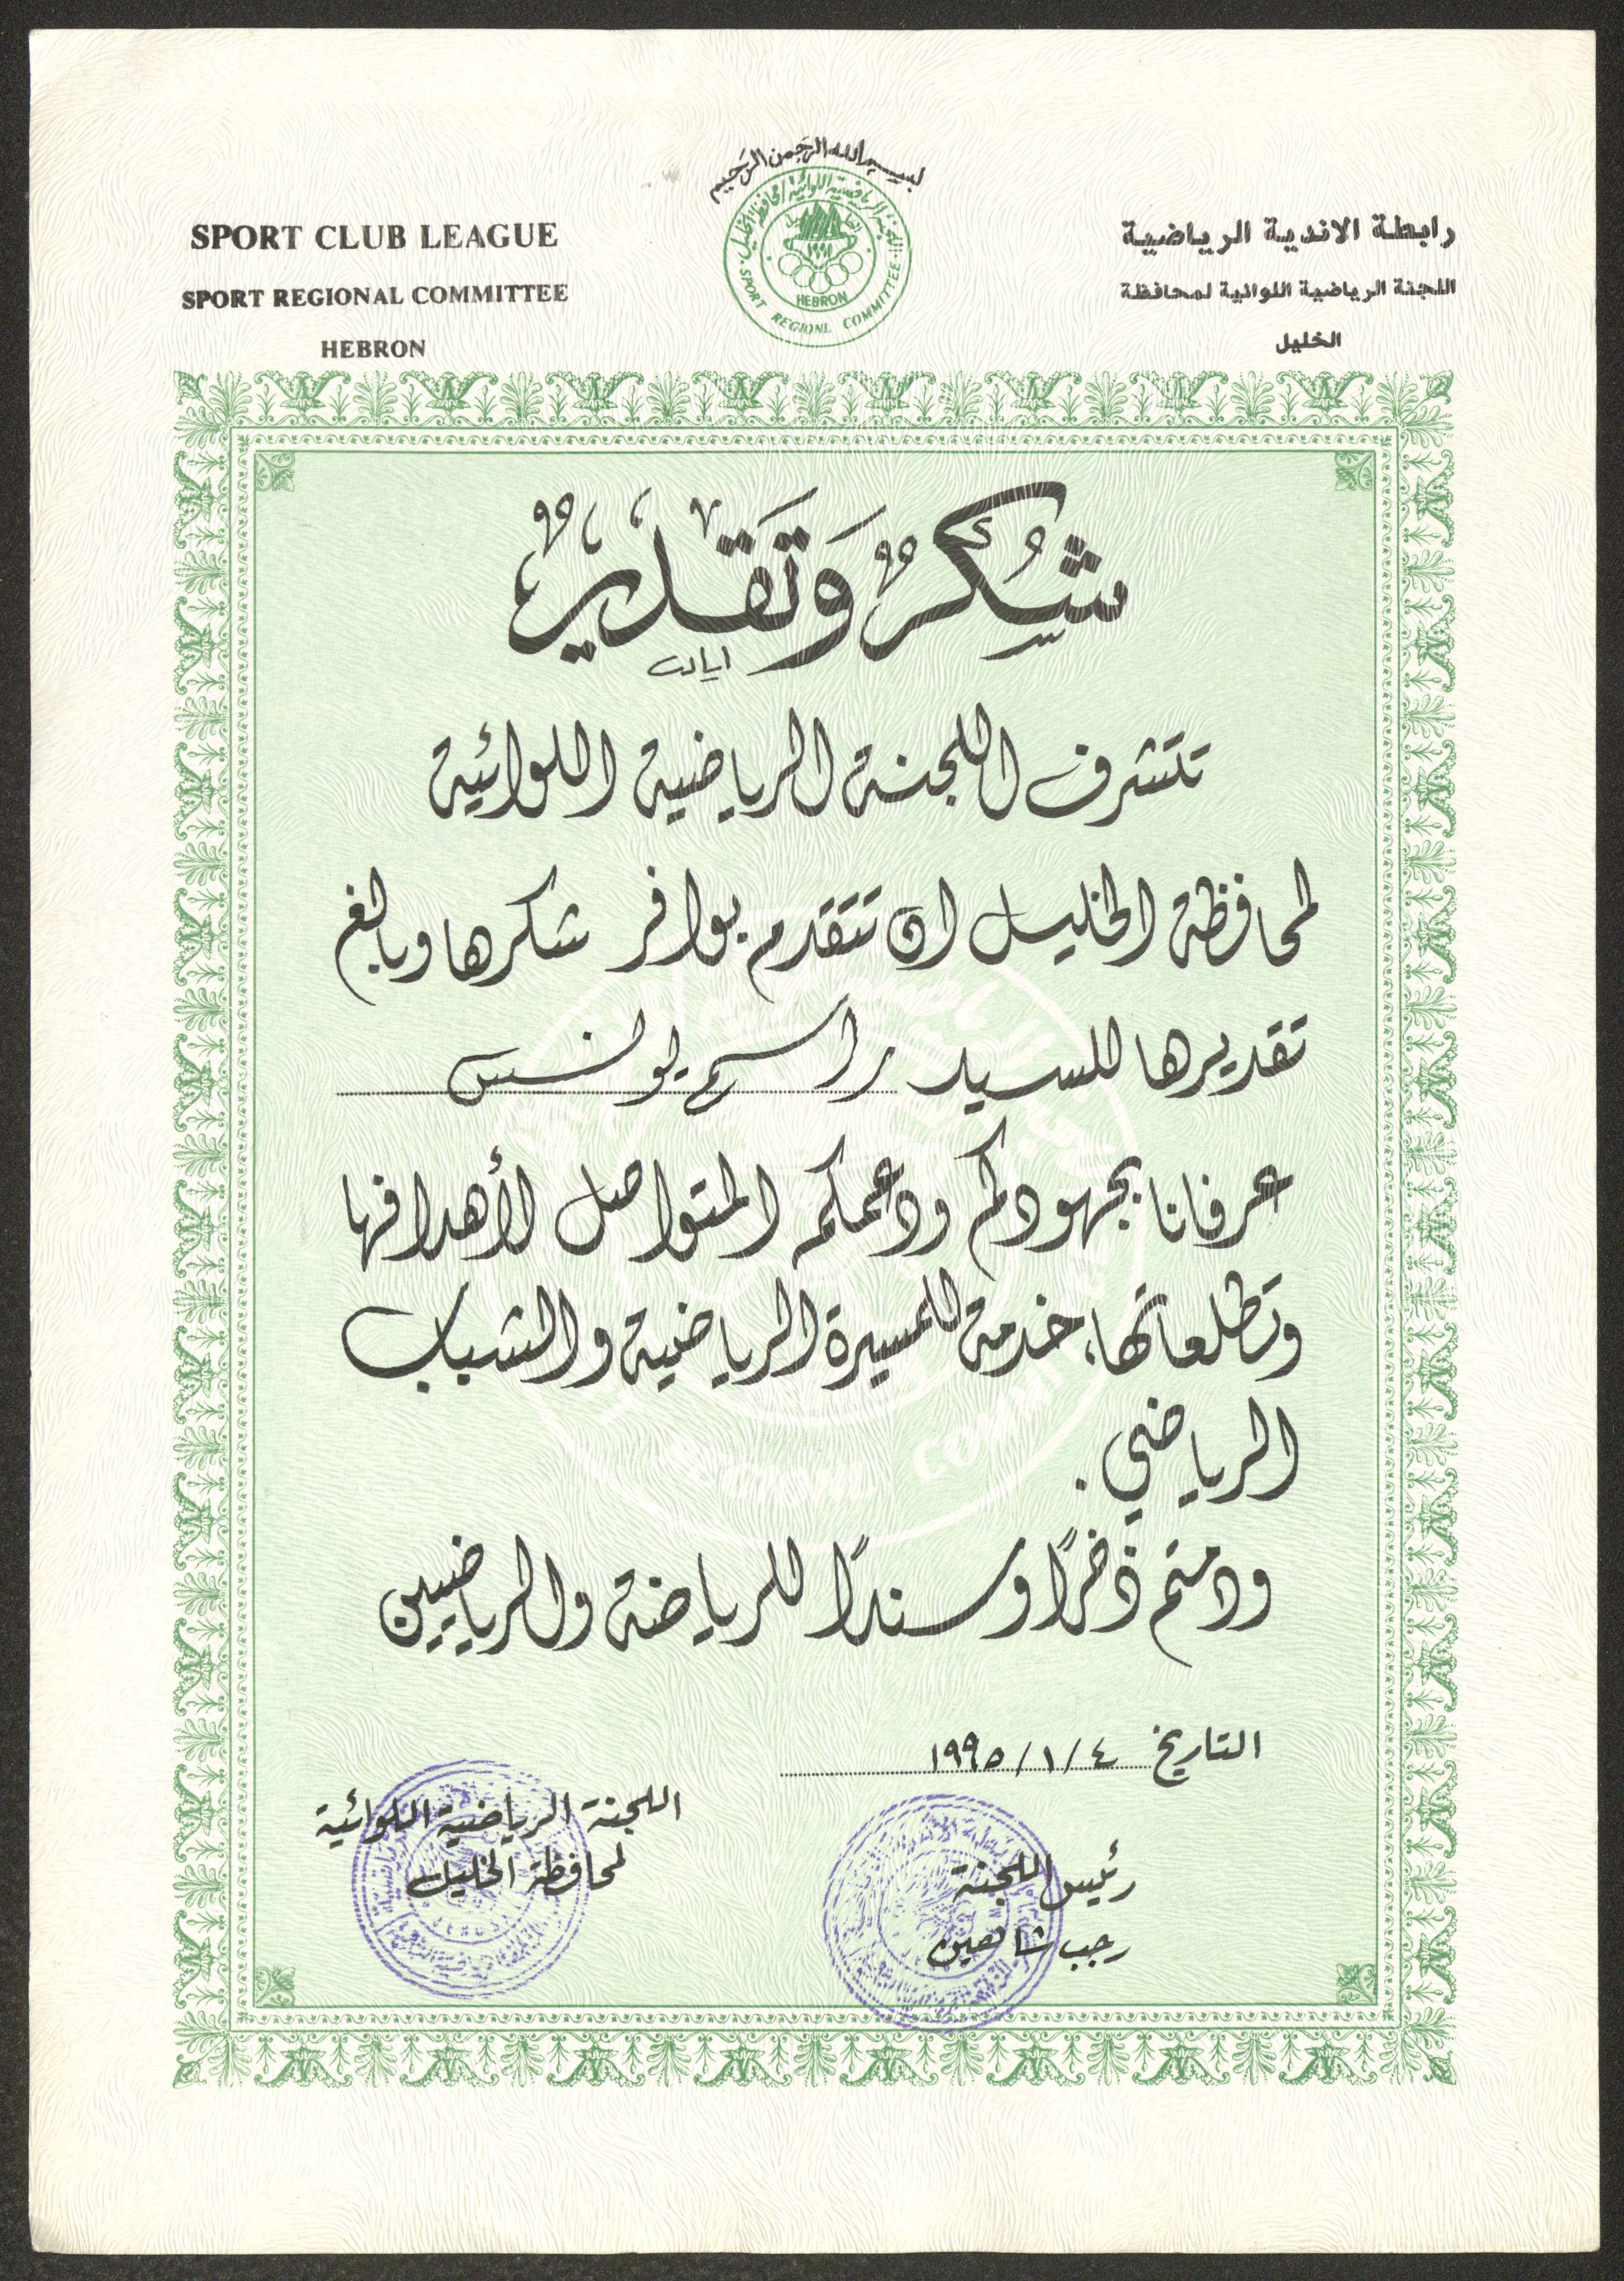 بسم الله الرحمن الرحيم
SPORT CLUB LEAGUE
SPORT REGIONAL COMMITTEE
HEBRON
رابطة الاندية الرياضية
اللجنة الرياضية اللوائية لمحافظة
الخليل
اللجنة الرياضية اللوائية لمحافظة الخليل
١٩٩١
HEBRON
SPORT REGIONL COMMITTEE
شُكرٌ وَتَقديرٌ
تتشرف اللجنة الرياضية اللوائية
لمحافظة الخليل ان تتقدم بوافر شكرها وبالغ
تقديرها للسيد راسم يونس
عرفانا بجهودكم ودعمكم المتواصل لأهدافها
وتطلعاتها، خدمة للمسيرة الرياضية والشباب
الرياضي.
ودمتم ذخرًا وسندًا للرياضة والرياضيين
التاريخ ٤ / ١ / ١٩٩٥
اللجنة الرياضية اللوائية
لمحافظة الخليل
رئيس اللجنة
رجب شاهين